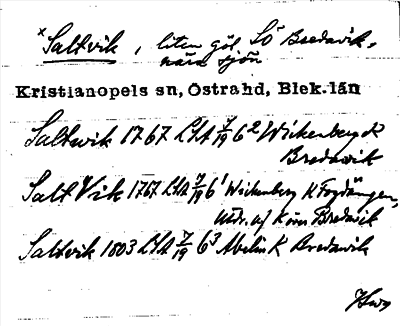 ×Saltvik, liten göl SÖ Bredavik,
nära sjön
Kristianopels sn, Östrahd, Blek.län
Saltwik 1767 LSA 7/19 6² Wickenberg K
Bredavik
Salt Vik 1767 LSA 7/19 6¹ Wickenberg K
Udr. af Bredavik
Saltvik 1803 LSA 7/19 6³ Abelin K Bredavik